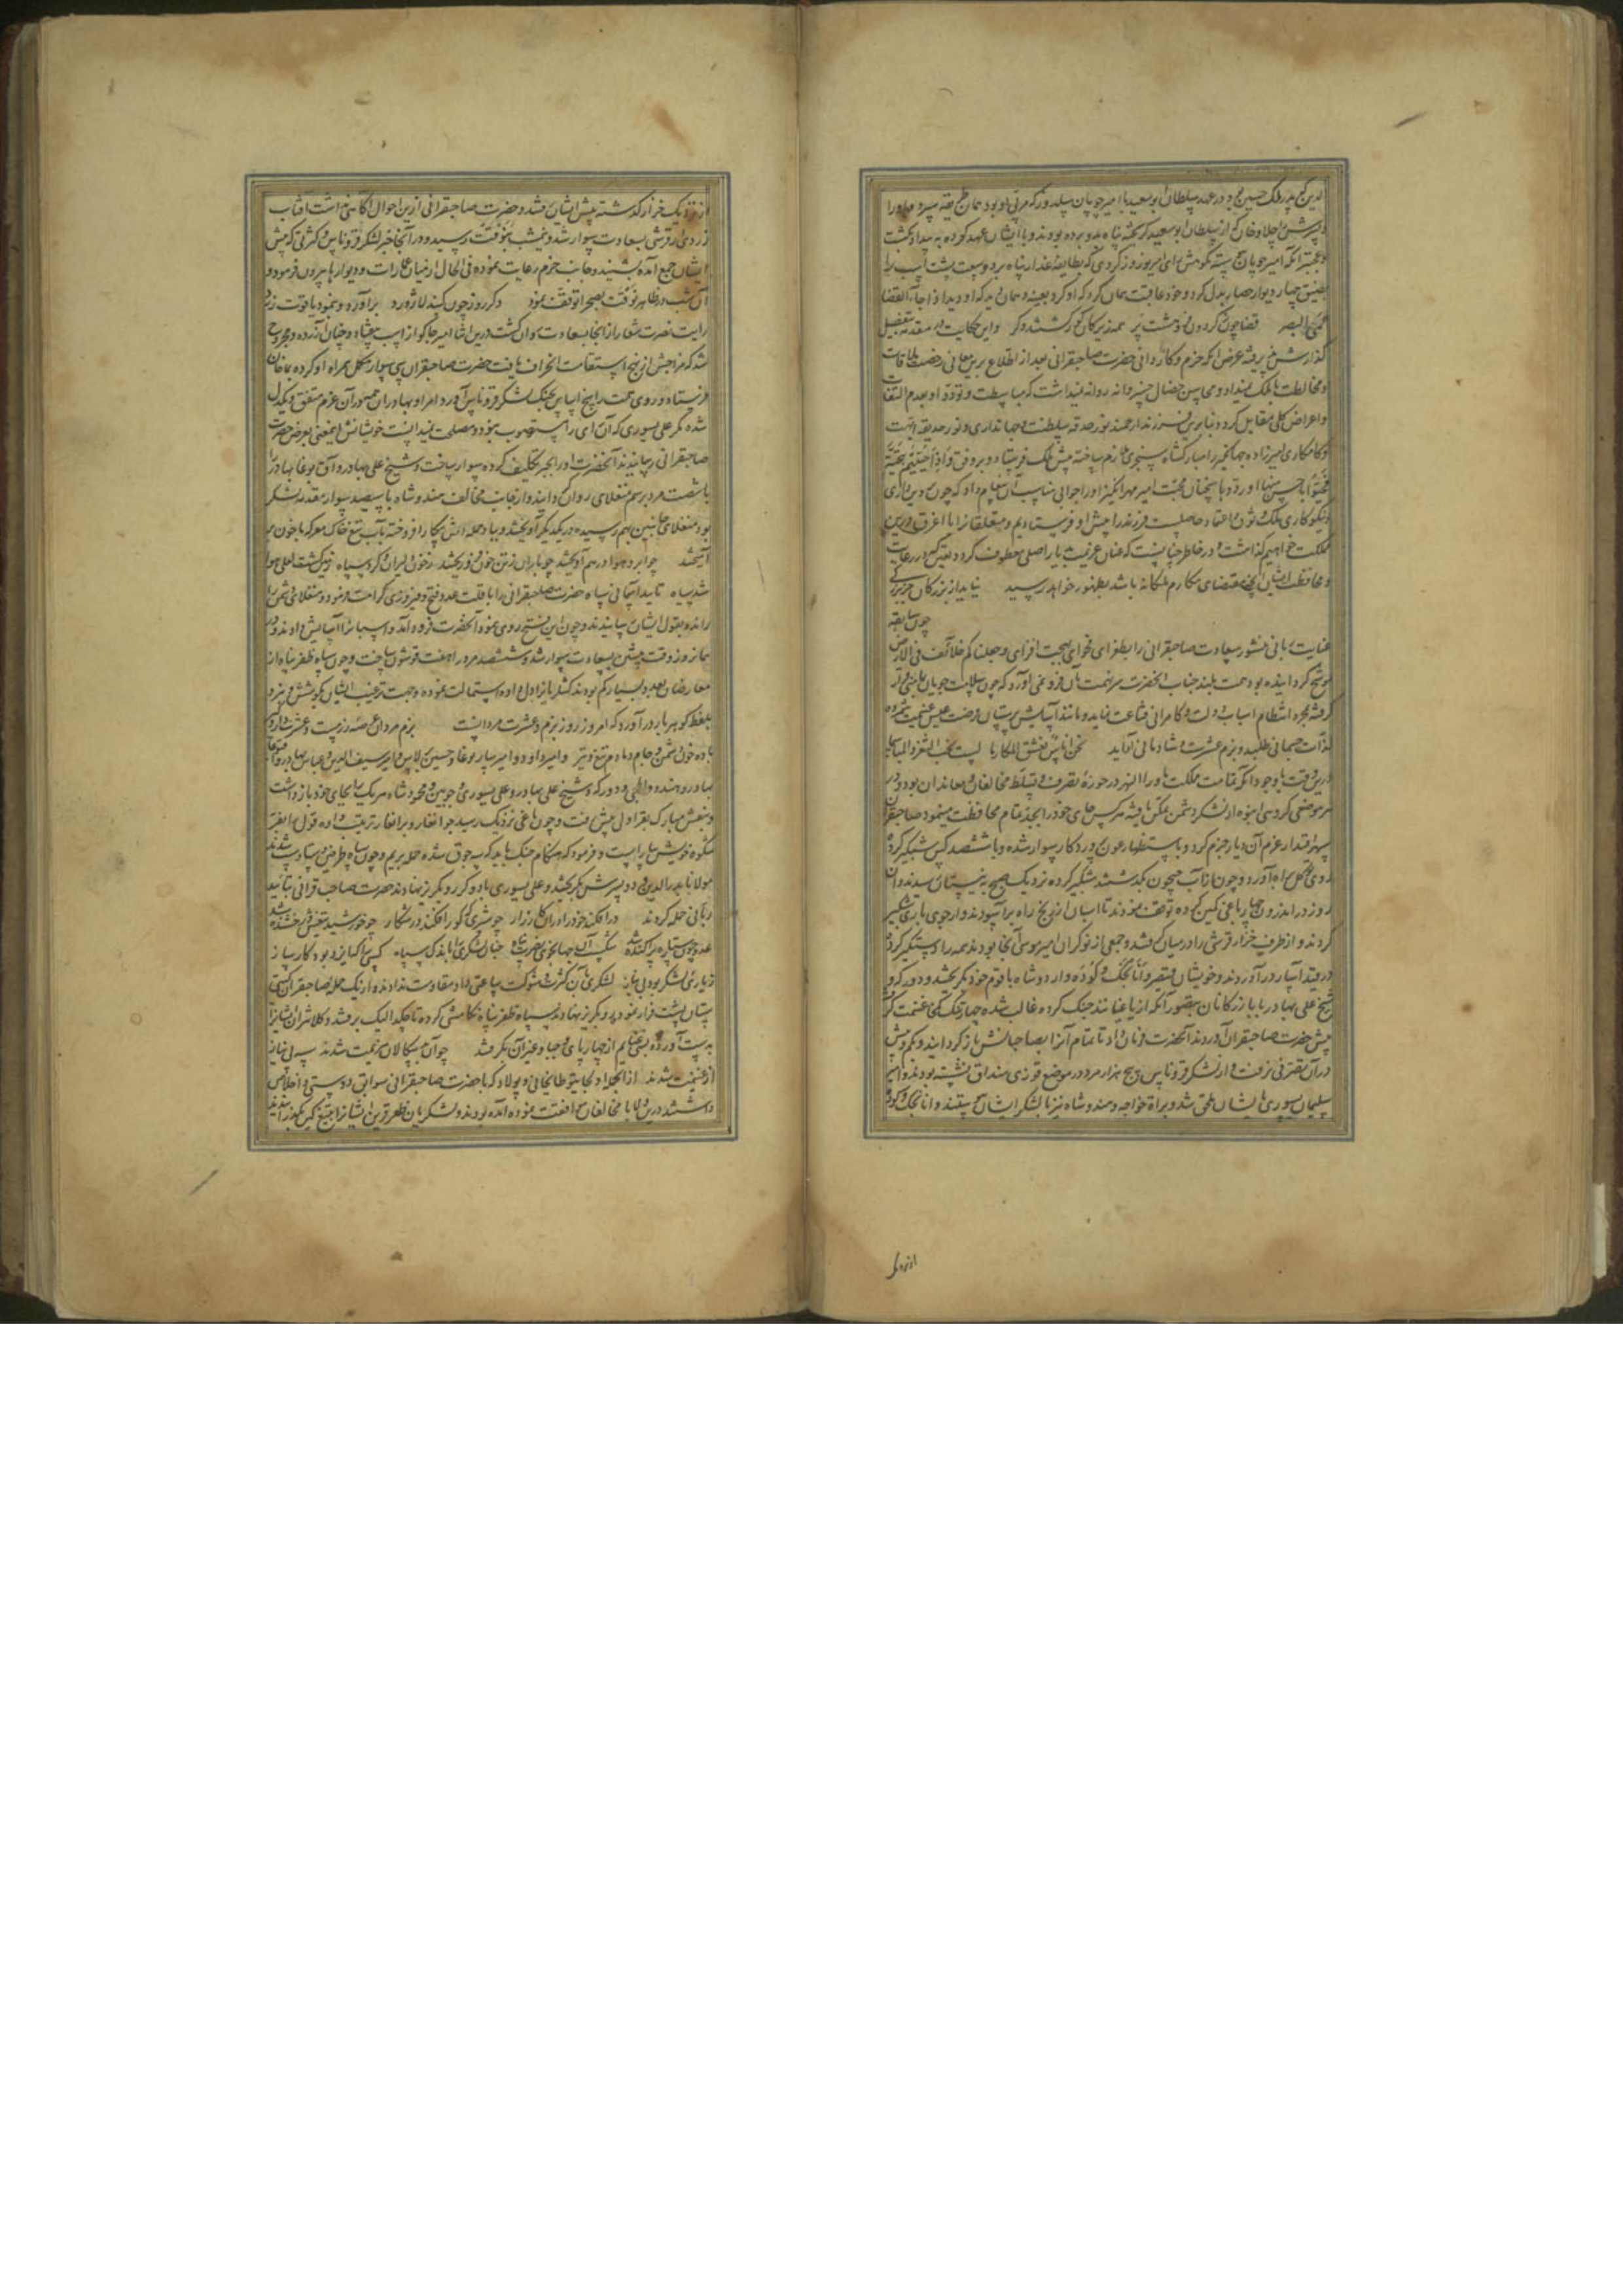 الدین که پدر ملک حسین بود در عهد سلطان ابوسعید با امیر چوپان سلدوز که مربی او بود همان طریقه سپرد و او را
و پسرش جلاوخان که از سلطان ابوسعید گریخته پناه بدو برده بودند و با ایشان عهد کرده به بیداد بکشت
و عجبتر آنکه امیر چوپان
چهار دیوار حصار بدل کرد و خود عاقبت همان کرد که او کرد بعینه و همان دید که او دید اذا جاء القضا
عمی البصر قضا چون ز گردون فرو هشت پر همه زیرکان کور گشتند و کر و این حکایت در مقدمه بتفصیل
گذارش پذیرفته غرض آنکه حزم و کاردانی حضرت صاحبقرانی بعد از اطلاع بر این معانی رخصت ملاقات
و مخالطت با ملک نمیداد و محاسن خصال خسروانه روا نمیداشت که مباسطت و تودد او بعدم التفات
و اعراض کلی مقابل گردد بنابرین فرزند ارجمند نور حدقه سلطنت و جهانداری و نور حدیقه ابهت
و کامکاری امیرزاده جهانگیر را مبارکشاه سنجری ملازم ساخته پیش ملک فرستاد و بر وفق و اذا حییتم بتحیة
فحیوا باحسن منها او ردوها سخنان محبت امیز مهر انگیز او را جوابی مناسب آن پیغام داد که چون
و نکوکاری ملک وثوق و اعتماد حاصلست فرزند را پیش او فرستادیم و متعلقان را با اغرق درین
مملکت خواهیم گذاشت و در خاطر چنانست که عنان عزیمت بدیار اصلی معطوف گردد یقین که در رعایت
و محافظت ایشان آنچه مقتضای مکارم ملکانه باشد بظهور خواهد رسید نیاید از بزرگان جز بزرگی
چون سابقه
عنایت ربانی منشور سعادت صاحبقرانی را بطغرای فحوای بهجت افزای و جعلناکم خلائف فی الارض
موشح گردانیده بود همت بلند جناب آنحضرت سر نهمت بآن فرو نمی آورد که چون سلامت جویان
گرفته بمجرد انتظام اسباب دولت و کامرانی قناعت نماید و مانند آسایش پرستان فرصت عیش غنیمت شمرده
لذات جسمانی طلبد و بزم عشرت و شادمانی آراید نحن اناس نعشق المکارما لسنا نحب الثغر و المباسما
درین وقت با وجود آنکه تمامت مملکت ماوراالنهر در حوزه تصرف و تسلط مخالفان و معاندان بود و در
هر موضعی گروهی انبوه از لشکر دشمن تمکن یافته هر کس جای خود را بجد تمام محافظت مینمود صاحبقران
سپهر اقتدار عزم آن دیار جزم کرد و باستظهار عون پروردگار سوار شده و با ششصد کس شبگیر کرده
روی توکل براه آورد و چون از آب جیحون بگذشتند شبگیر کرده نزدیک صبح به نیستان رسیدند و آن
روز در اندرون چهارباغی کمین کرده توقف نمودند تا اسبان از رنج راه برآسودند
کردند و از طرف خزار قرشی را در میان گرفتند و جمعی از نوکران امیر موسی آنجا بودند همه را دستگیر کرده
در قید اسار درآوردند و خویشان قیصر و اناتجک و کوده و اردوشاه با قوم خود بگریختند و دور کرد
شیخ علی بهادر با بازرگانان بتصور آنکه از یاغیانند جنگ کرده غالب شده چهار تنگ تنگه غنیمت گرفت
پیش حضرت صاحبقران آوردند آنحضرت فرمان داد تا تمام آنرا بصاحبانش باز گردانیدند
در آن قضیه نرفت و از لشکر قروناس پنج هزار مرد در موضع قوزی منداق نشسته بودند و امیر
سلیمان یسوری بایشان ملحق شد و برات خواجه و هندوشاه نیز با لشکر ایشان پیوستند و اناتجک و کوده
از نزدیک
از نزدیک خزار گذشته پیش ایشان رفتند و حضرت صاحبقرانی ازین احوال آگاهی نداشت آفتاب
زردی از قرشی بسعادت سوار شد و نیمشب بنوقت رسید و در آنجا خبر لشکر قروناس و کثرتی که پیش
ایشان جمع آمده بشنید و جانب حزم رعایت نموده فی الحال از میان عمارات و دیوارها بیرون فرمود و
آن شب در ظاهر نوقت بصحرا توقف نمود دگر روز چون گنبد لاژورد برآورد و بنمود یاقوت زرد
رایت نصرت شعار از آنجا بسعادت روان گشت درین اثنا امیر جاکو از اسب بیفتاد و چنان آزرده و مجروح
شد که مزاجش از نهج استقامت انحراف یافت حضرت صاحبقران سی سوار مکمل همراه او کرده بماخان
فرستاد و روی همت راسخ اساس بجنگ لشکر قروناس آورد امرا و بهادران همه در آن عزم متفق و یکدل
شده مگر علی یسوری که آن رای را استصوب ننمود و مصلحت ندانست خویشانش این معنی بعرض حضرت
صاحبقرانی رسانیدند آنحضرت او را بجبر تکلیف کرده سوار ساخت و شیخ علی بهادر و آق بوغا بهادر را
با شصت مرد برسم منغلای روان گردانید و از جانب مخالف هندوشاه با سیصد سوار مقدمه لشکر
بود منغلای جانبین بهم رسیده در یکدیگر آویختند و بباد حمله آتش پیکار افروخته بآب تیغ خاک معرکه با خون بر
آمیختند چو ابر و هوا در هم آویختند چو باران ز تن خون فرو ریختند ز خون دلیران و گرد سپاه زمین گشت لعل و هوا
شد سیاه تایید آسمانی سپاه حضرت صاحبقرانی را با قلت عدد فتح و فیروزی کرامت فرمود و منغلای دشمن را
رانده بقول ایشان رسانیدند و چون این فتح روی نمود آنحضرت فرود آمد و اسبان را آسایش دادند و
همان روز وقت پیشین بسعادت سوار شد و ششصد مرد را هفت قوشون ساخت و چون سپاه ظفر پناه از
معارضان بعدد بسیار کم بودند کنکلریان اول داده استمالت نموده و جهت ترغیب ایشان بکوشش و نبرد
بلفظ گوهر بار درآورد که امروز روز بزم و عشرت مردانست بزم مردان عرصه رزمست و عشرت داروگیر
باده خون دشمن و جام دمادم تیغ و تیر و امیر داود و امیر ساربوغا و حسین برلاس و امیر سیف الدین و عباس بهادر
بهادر و هندو و ایلچی و دورکه و شیخ علی بهادر و علی یسوری و جوبین و محمودشاه هر یک را بجای خود باز داشت
و بنفس مبارک بقراول پیش رفت و چون یاغی نزدیک رسید جوانغار و برانغار ترتیب داده قول را بفر
شکوه خویش بیاراست و فرمود که هنگام جنگ باید که سه جوق شده حمله بریم و چون سپاه طرفین
مولانا بدرالدین و دو پسرش بگریختند و علی یسوری با دو کس رو بگریز نهادند حضرت صاحب قرانی بتایید
ربانی حمله کردند درافکند خود را در آن کارزار چو شیری که گور افکند در شکار چو خورشید تیغش رخشنده شد
عدو چون ستاره پراکنده شد شکست آن جهانجوی نصرت پناه چنان لشکری را باندک سپاه کسی را که ایزد بود کارساز
ز یاری لشکر بود بی نیاز لشکری بآن کثرت و شوکت ساعتی داد مقاومت ندادند و از یک حمله صاحبقران گیتی
ستان پشت فرار نموده رو بگریز نهادند و سپاه ظفر پناه تکامیشی کرده تا چکدالیک برفتند و کلانتران ایشان را
بدست آورده بسی غنایم از چهارپای و جبا و غیر آن بگرفتند چو آن بدسگالان هزیمت شدند سپه بی نیاز
از غنیمت شدند از آنجمله اولجایتو طایخانی و پولاد که با حضرت صاحبقرانی سوابق دوستی و اخلاص
داشتند درین ولا با مخالفان موافقت نموده آمده بودند و لشکریان ظفر قرین ایشان را